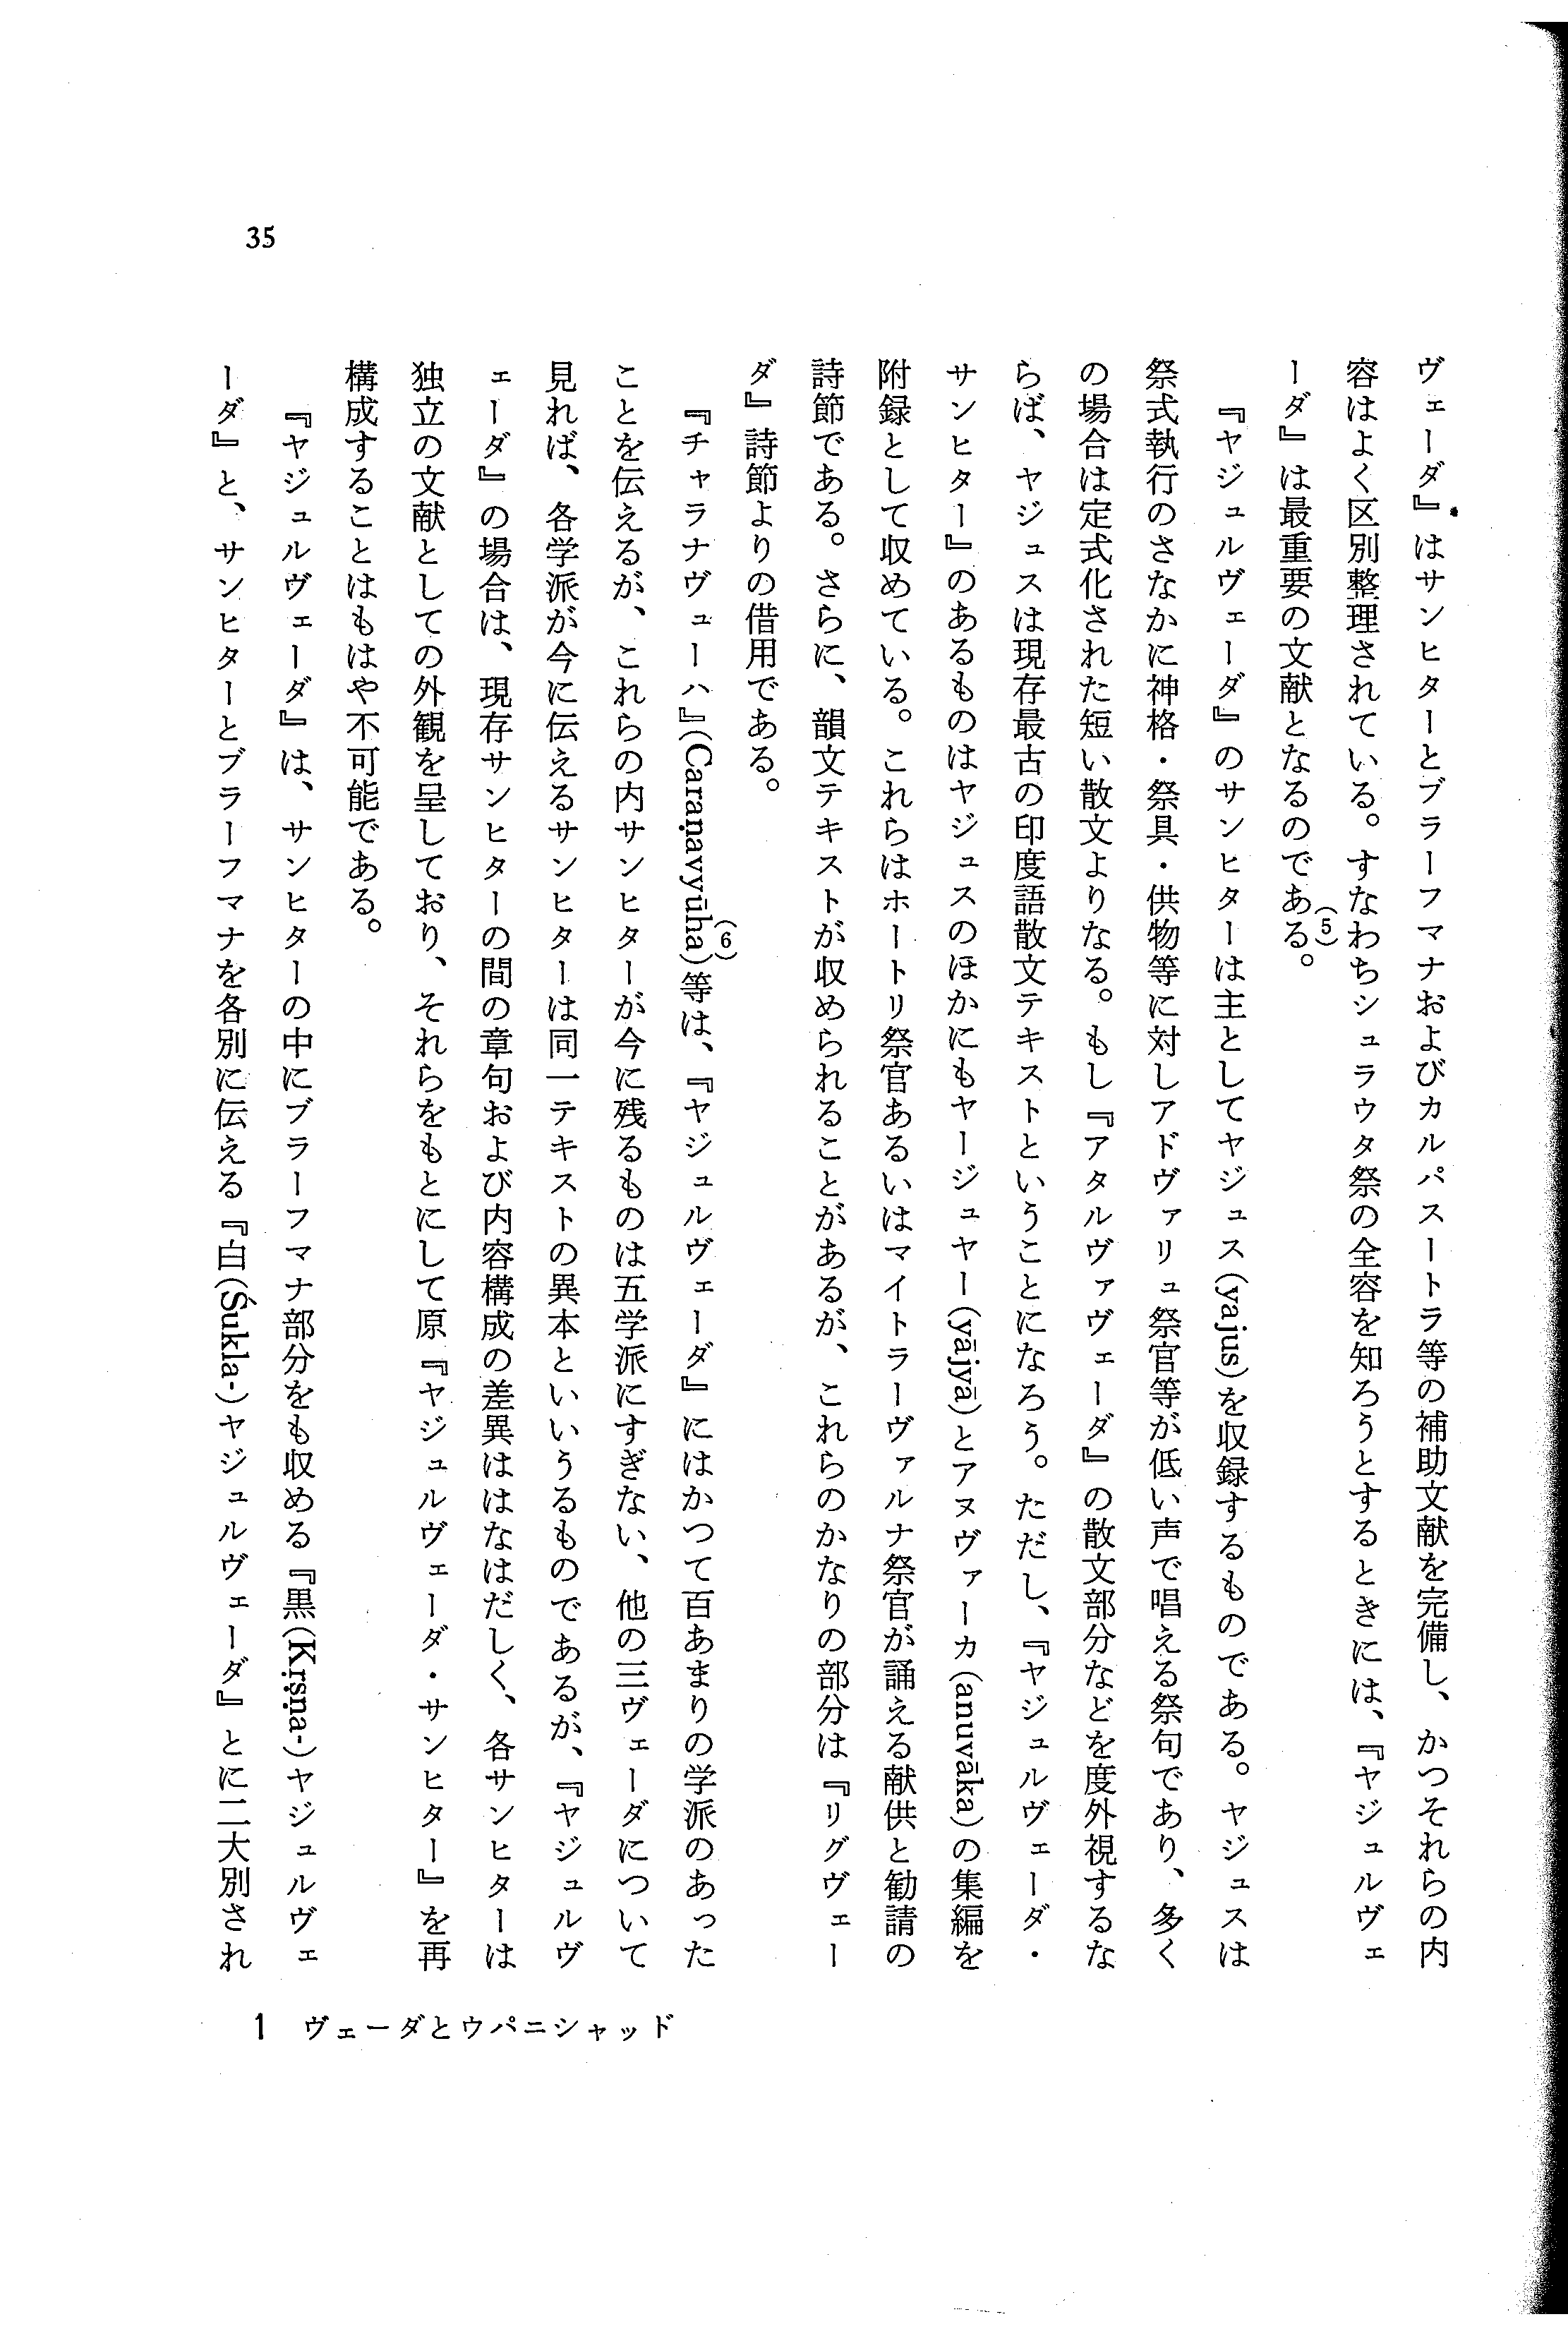 35
ヴェーダ』はサンヒターとブラーフマナおよびカルパスートラ等の補助文献を完備し、かつそれらの内
容はよく区別整理されている。すなわちシュラウタ祭の全容を知ろうとするときには、『ヤジュルヴェ
ーダ』は最重要の文献となるのである(5)。
『ヤジュルヴェーダ』のサンヒターは主としてヤジュス(yajus)を収録するものである。ヤジュスは
祭式執行のさなかに神格・祭具・供物等に対しアドヴァリュ祭官等が低い声で唱える祭句であり、多く
の場合は定式化された短い散文よりなる。もし『アタルヴァヴェーダ』の散文部分などを度外視するな
らば、ヤジュスは現存最古の印度語散文テキストということになろう。ただし、『ヤジュルヴェーダ・
サンヒター』のあるものはヤジュスのほかにもヤージュヤー(yājyā)とアヌヴァーカ(anuvāka)の集編を
附録として収めている。これらはホートリ祭官あるいはマイトラーヴァルナ祭官が誦える献供と勧請の
詩節である。さらに、韻文テキストが収められることがあるが、これらのかなりの部分は『リグヴェー
ダ』詩節よりの借用である。
『チャラナヴューハ』(Caraṇavyūha)(6)等は、『ヤジュルヴェーダ』にはかつて百あまりの学派のあった
ことを伝えるが、これらの内サンヒターが今に残るものは五学派にすぎない、他の三ヴェーダについて
見れば、各学派が今に伝えるサンヒターは同一テキストの異本といいうるものであるが、『ヤジュルヴ
ェーダ』の場合は、現存サンヒターの間の章句および内容構成の差異ははなはだしく、各サンヒターは
独立の文献としての外観を呈しており、それらをもとにして原『ヤジュルヴェーダ・サンヒター』を再
構成することはもはや不可能である。
『ヤジュルヴェーダ』は、サンヒターの中にブラーフマナ部分をも収める『黒(Kṛṣṇa-)ヤジュルヴェ
ーダ』と、サンヒターとブラーフマナを各別に伝える『白(Śukla-)ヤジュルヴェーダ』とに二大別され
1 ヴェーダとウパニシャッド